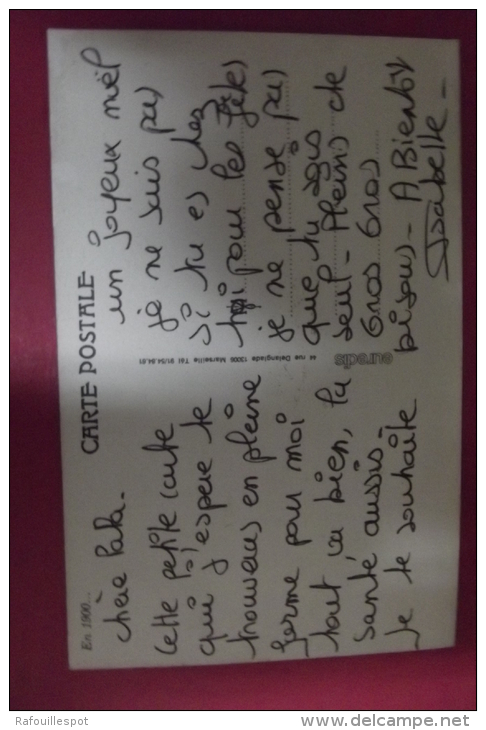 En 1900...
CARTE POSTALE
chère
Cette petite carte
que j'espere te
trouveras en pleine
forme pour moi
tout va bien, la
santé aussis.
Je te souhaite
un joyeux noël
je ne suis pas
si tu es chez
toi pour les fêtes
je ne pense pas
que tu sois
seul - Pleins de
Gros Gros
bisous - A Bientôt
Isabelle -
euredis
44 rue Delanglade 13006 Marseille Tél 91/54.94.61
Rafouillespot
www.delcampe.net